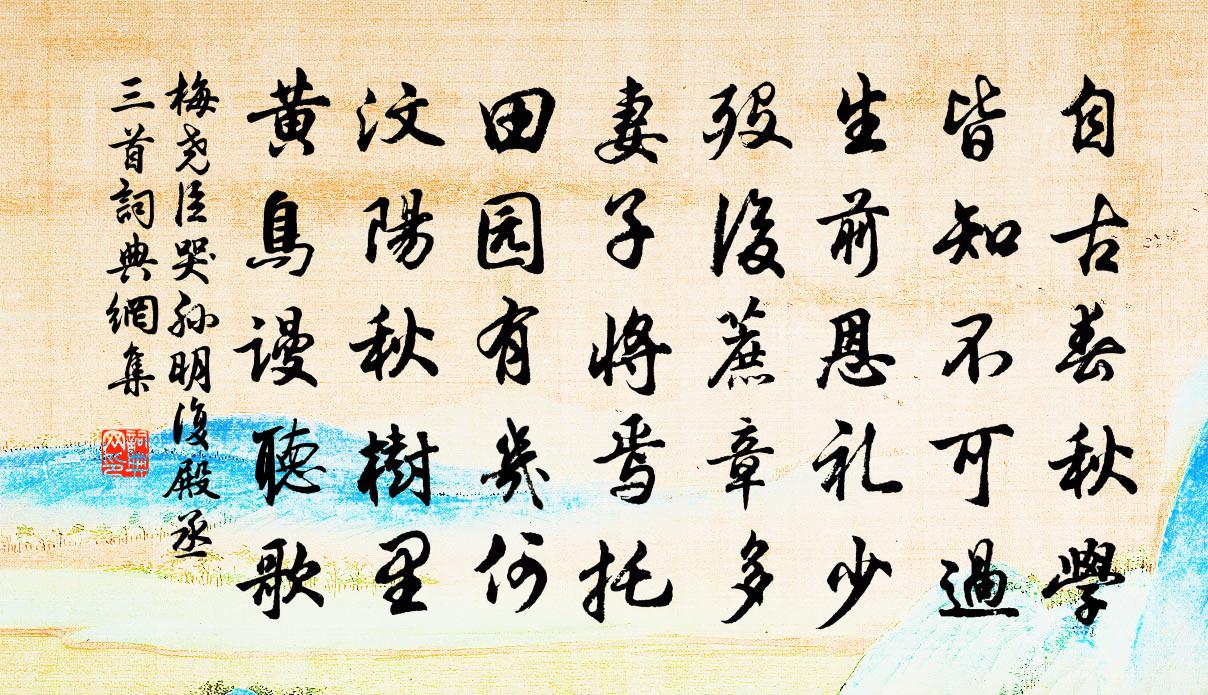 自古春秋學
皆知不可過
生前恩礼少
歿後薦章多
妻子將焉托
田园有幾何
汶陽秋樹里
黃鳥謾聽歌
梅尧臣哭孙明復殿丞
三首詞典網集